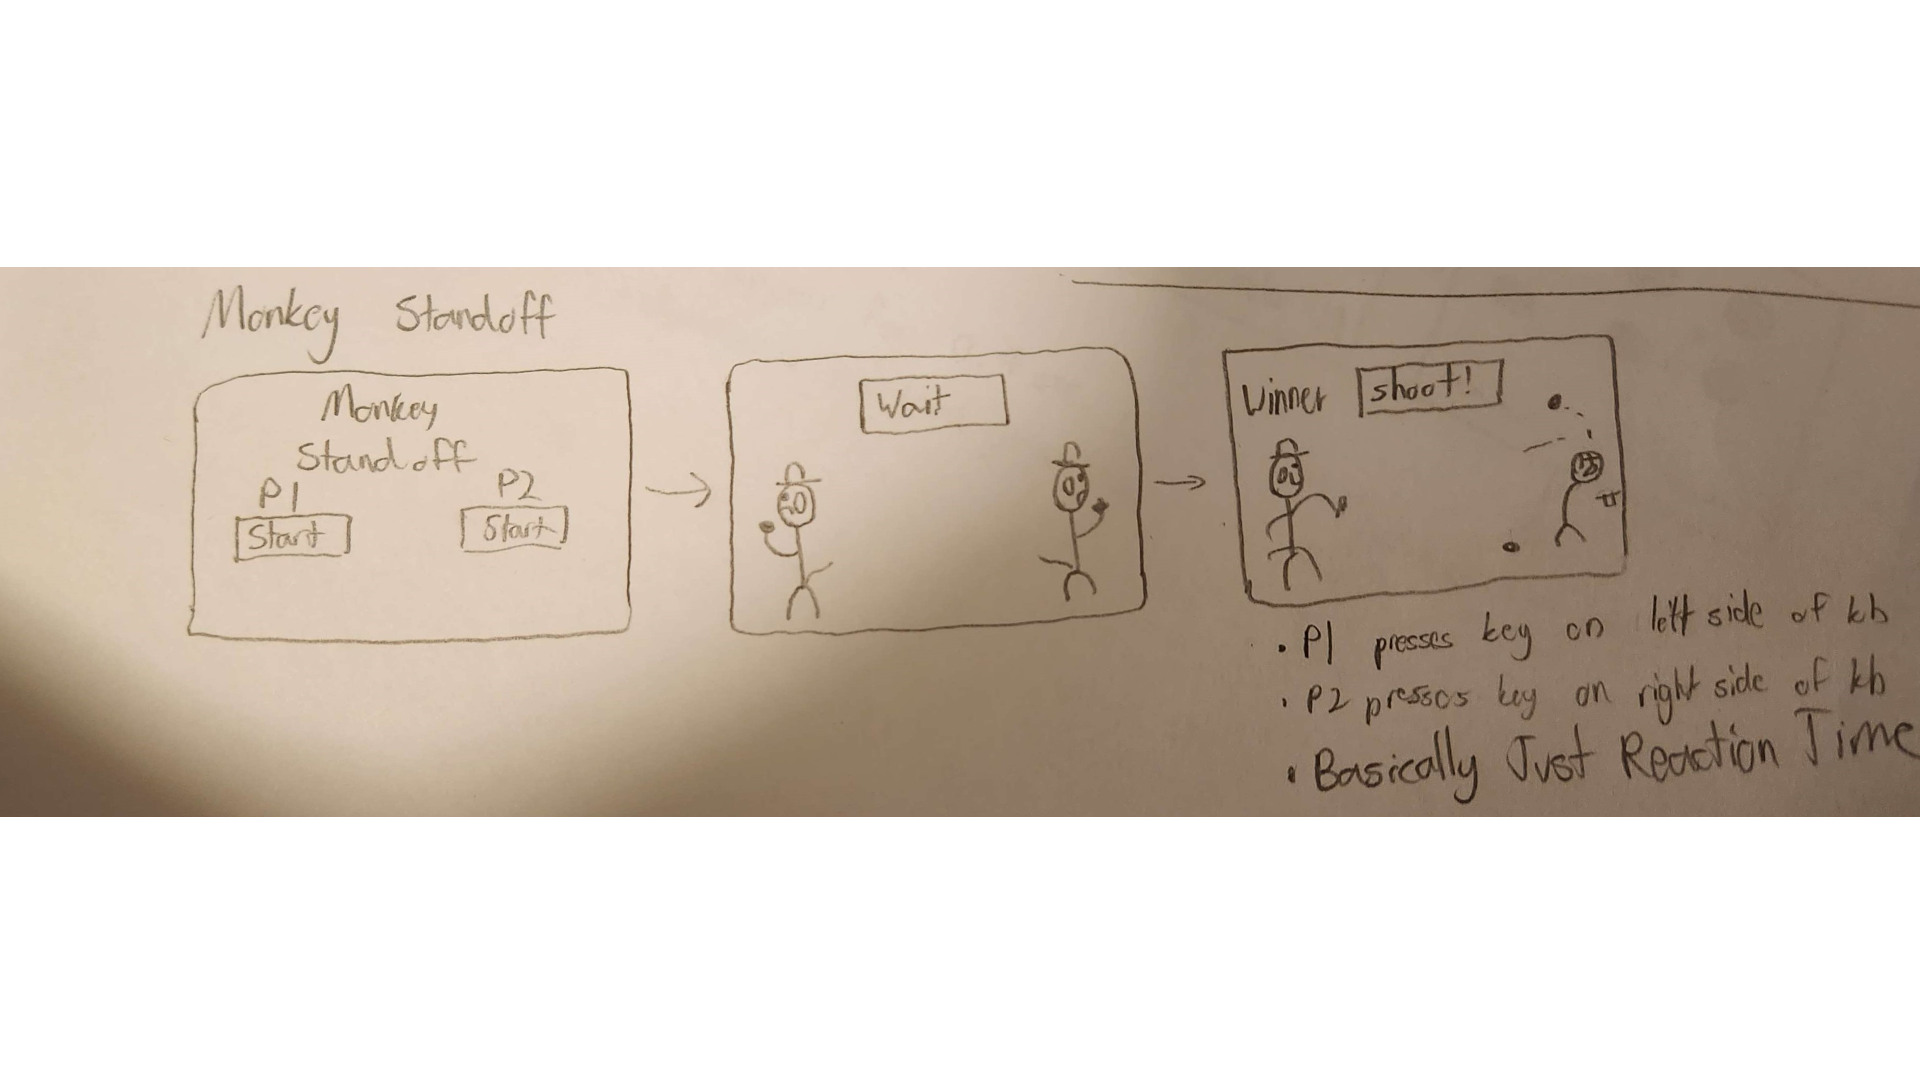 Monkey Standoff
Monkey
Standoff
P1
P2
Start
Start
Wait
Winner
shoot!
• P1 presses key on left side of kb
• P2 presses key on right side of kb
• Basically Just Reaction Time